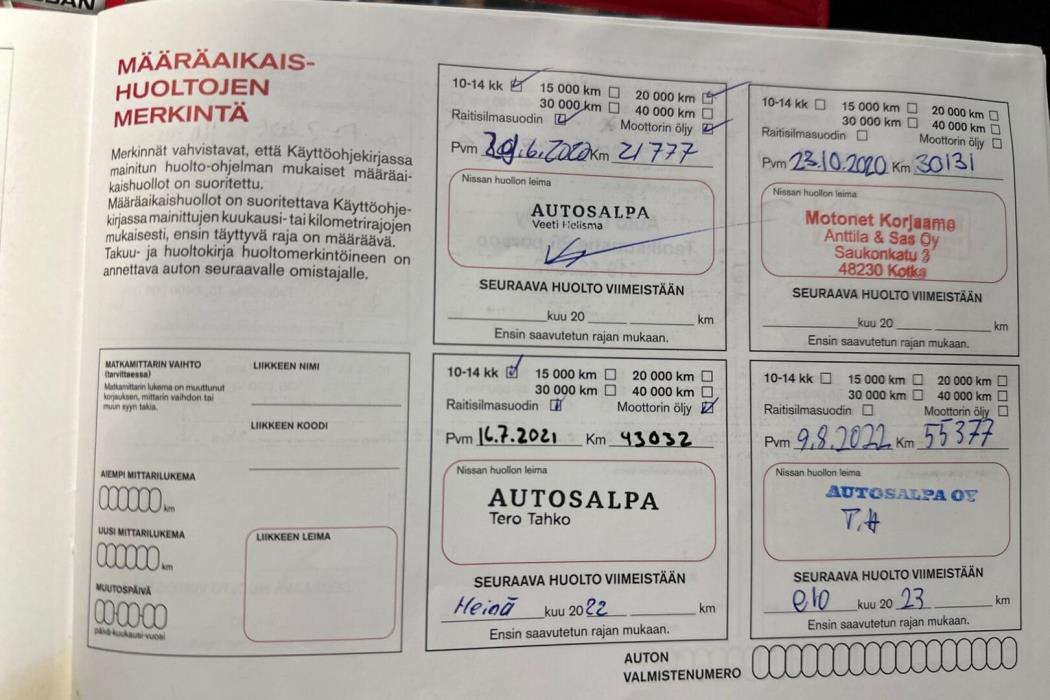 MÄÄRÄAIKAIS-
HUOLTOJEN
MERKINTÄ
Merkinnät vahvistavat, että Käyttöohjekirjassa
mainitun huolto-ohjelman mukaiset määräai-
kaishuollot on suoritettu.
Määräaikaishuollot on suoritettava Käyttöohje-
kirjassa mainittujen kuukausi- tai kilometrirajojen
mukaisesti, ensin täyttyvä raja on määräävä.
Takuu- ja huoltokirja huoltomerkintöineen on
annettava auton seuraavalle omistajalle.
10-14 kk 15 000 km 20 000 km
30 000 km 40 000 km
Raitisilmasuodin Moottorin öljy
Pvm 29.6.2020 Km 21777
Nissan huollon leima
AUTOSALPA
Veeti Helisma
SEURAAVA HUOLTO VIIMEISTÄÄN
kuu 20 km
Ensin saavutetun rajan mukaan.
10-14 kk 15 000 km 20 000 km
30 000 km 40 000 km
Raitisilmasuodin Moottorin öljy
Pvm 23.10.2020 Km 30131
Nissan huollon leima
Motonet Korjaamo
Anttila & Sas Oy
Saukonkatu 3
48230 Kotka
SEURAAVA HUOLTO VIIMEISTÄÄN
kuu 20 km
Ensin saavutetun rajan mukaan.
MATKAMITTARIN VAIHTO
(tarvittaessa)
Matkamittarin lukema on muuttunut
korjauksen, mittarin vaihdon tai
muun syyn takia.
LIIKKEEN NIMI
LIIKKEEN KOODI
AIEMPI MITTARILUKEMA
km
UUSI MITTARILUKEMA
km
MUUTOSPÄIVÄ
päivä-kuukausi-vuosi
LIIKKEEN LEIMA
10-14 kk 15 000 km 20 000 km
30 000 km 40 000 km
Raitisilmasuodin Moottorin öljy
Pvm 16.7.2021 Km 43032
Nissan huollon leima
AUTOSALPA
Tero Tahko
SEURAAVA HUOLTO VIIMEISTÄÄN
Heinä kuu 2022 km
Ensin saavutetun rajan mukaan.
10-14 kk 15 000 km 20 000 km
30 000 km 40 000 km
Raitisilmasuodin Moottorin öljy
Pvm 9.8.2022 Km 55377
Nissan huollon leima
AUTOSALPA OY
T.H
SEURAAVA HUOLTO VIIMEISTÄÄN
elo kuu 20 23 km
Ensin saavutetun rajan mukaan.
AUTON
VALMISTENUMERO